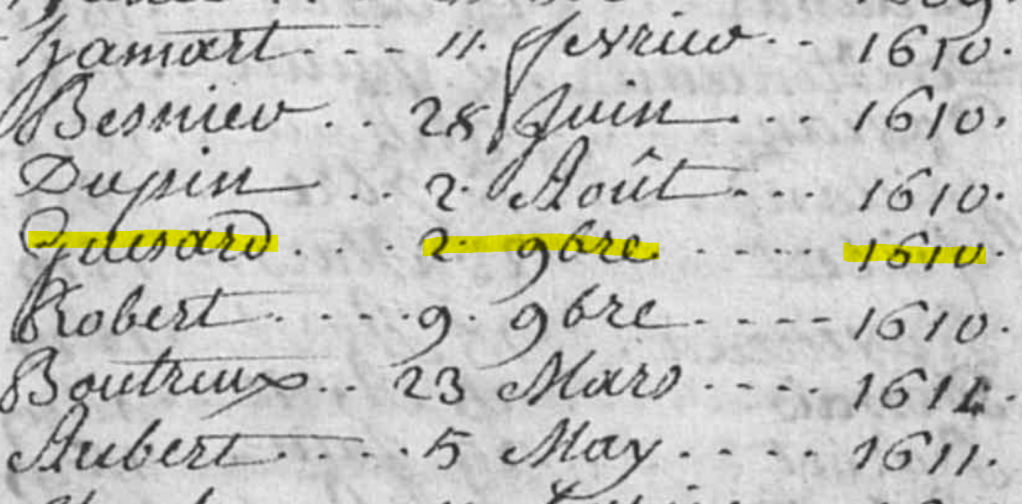 hamart - - - - 11. fevrier - - 1610.
Besnier . . . 28 Juin . . . 1610.
Dupin . . . 2. Août - - - 1610.
Guerard . . . . 2. 9bre. - - - - - 1610.
Robert - - - - 9. 9bre - - - - - 1610.
Boutreux . . . 23 Mars - - - - 1611.
Aubert - - - - 5 May - - - - 1611.